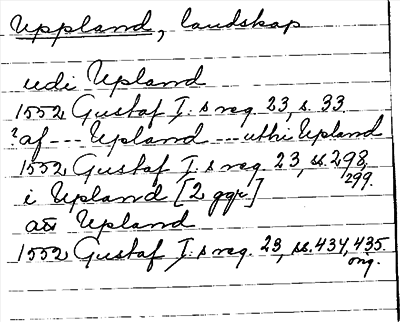 Uppland, landskap
udi Upland
1552 Gustaf I:s reg. 23, s. 33
?af --- Upland --- uthi Upland
1552 Gustaf I:s reg. 23, ss. 298,
299.
i Upland [2 ggr]
aff Upland
1552 Gustaf I:s reg. 23, ss. 434, 435.
orig.